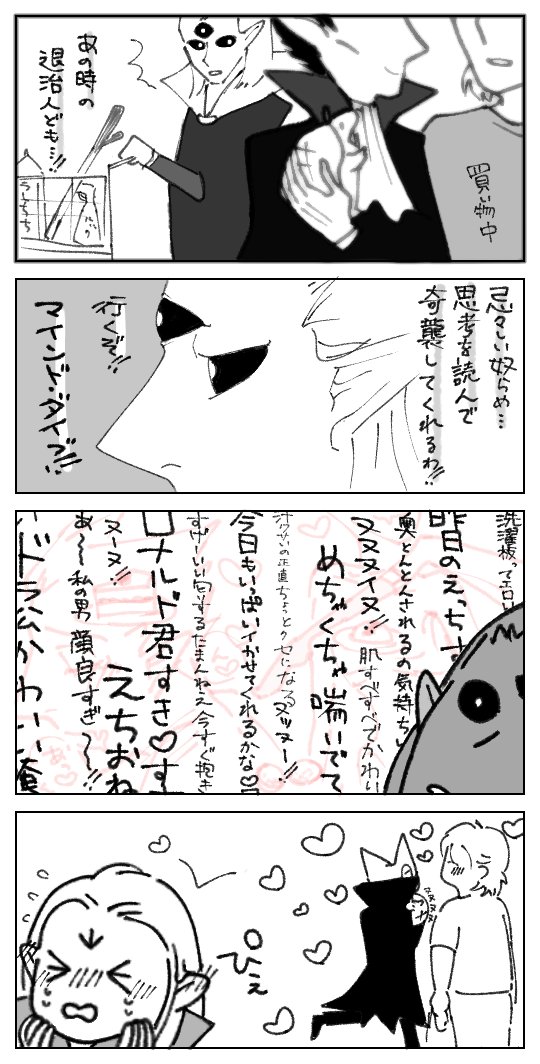 買い物中
あの時の
退治人ども…!!
うちわ
忌々しい奴らめ…
思考を読んで
奇襲してくれるわ!!
行くぞ!!
マインド・ダイブ!!
洗濯板ってエロい
昨日のえっち
奥とんとんされるの気持ちい
ヌヌヌイヌ!!
肌すべすべでかわい
めちゃくちゃ喘いでて
汗クサいの正直ちょっとクセになる
ヌッヌー!!
今日もいっぱいイかせてくれるかな♡
すげーいい匂するたまんねえ今すぐ抱き
ロナルド君すき♡す
えちおね
ヌーヌ!!
あ〜〜私の男顔良すぎ〜〜!!
ドラ公かわいい俺
ぴえ
ヌヌヌヌ